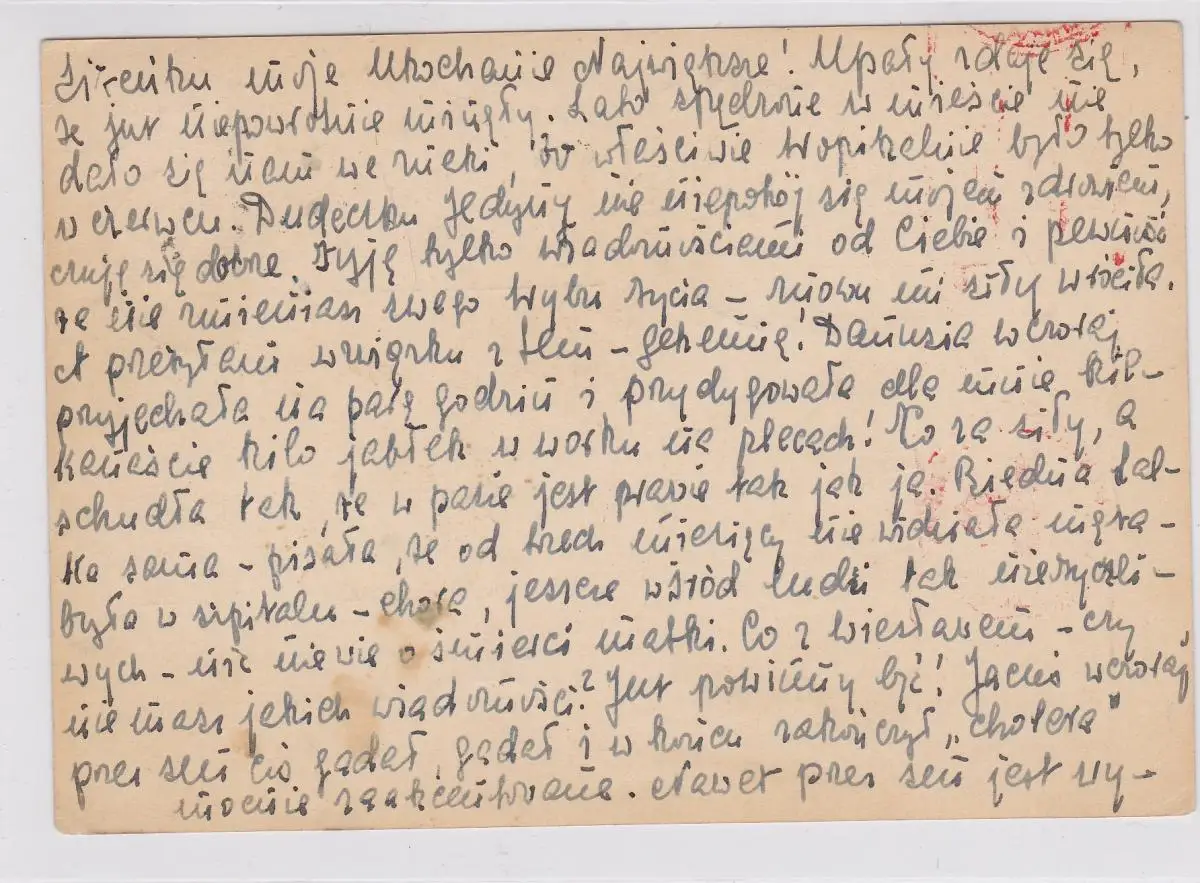 moje Ukochanie Największe! Upały zdaje się,
że już niepowrotnie minęły. Lato spędzone w mieście nie
dało się nam we znaki, bo właściwie tropikalnie było tylko
w czerwcu. Dudeczku Jedyny nie niepokój się mojem zdrowiem,
czuję się dobrze. Żyję tylko wiadomościami od Ciebie i pewność
że nie zmieniasz swego trybu życia – znowu mi siły wróciła.
A przeżyłam w związku z tem – gehennę! Danusia wczoraj
przyjechała na parę godzin i przydygowała dla mnie kil-
kanaście kilo jabłek w worku na plecach! Co za siły, a
schudła tak, że w pasie jest prawie tak jak ja. Biedna Hal-
ka sama – pisała, że od trzech miesięcy nie widziała męża –
była w szpitalu – chora, jeszcze wśród ludzi tak nieżyczli-
wych – nic nie wie o śmierci matki. Co z Wiesławem – czy
nie masz jakich wiadomości? Już powinny być! Jacuś wczoraj
przez sen coś gadał, gadał i w końcu zakończył „cholera"
mocnie zaakcentowane. Nawet przez sen jest wy-